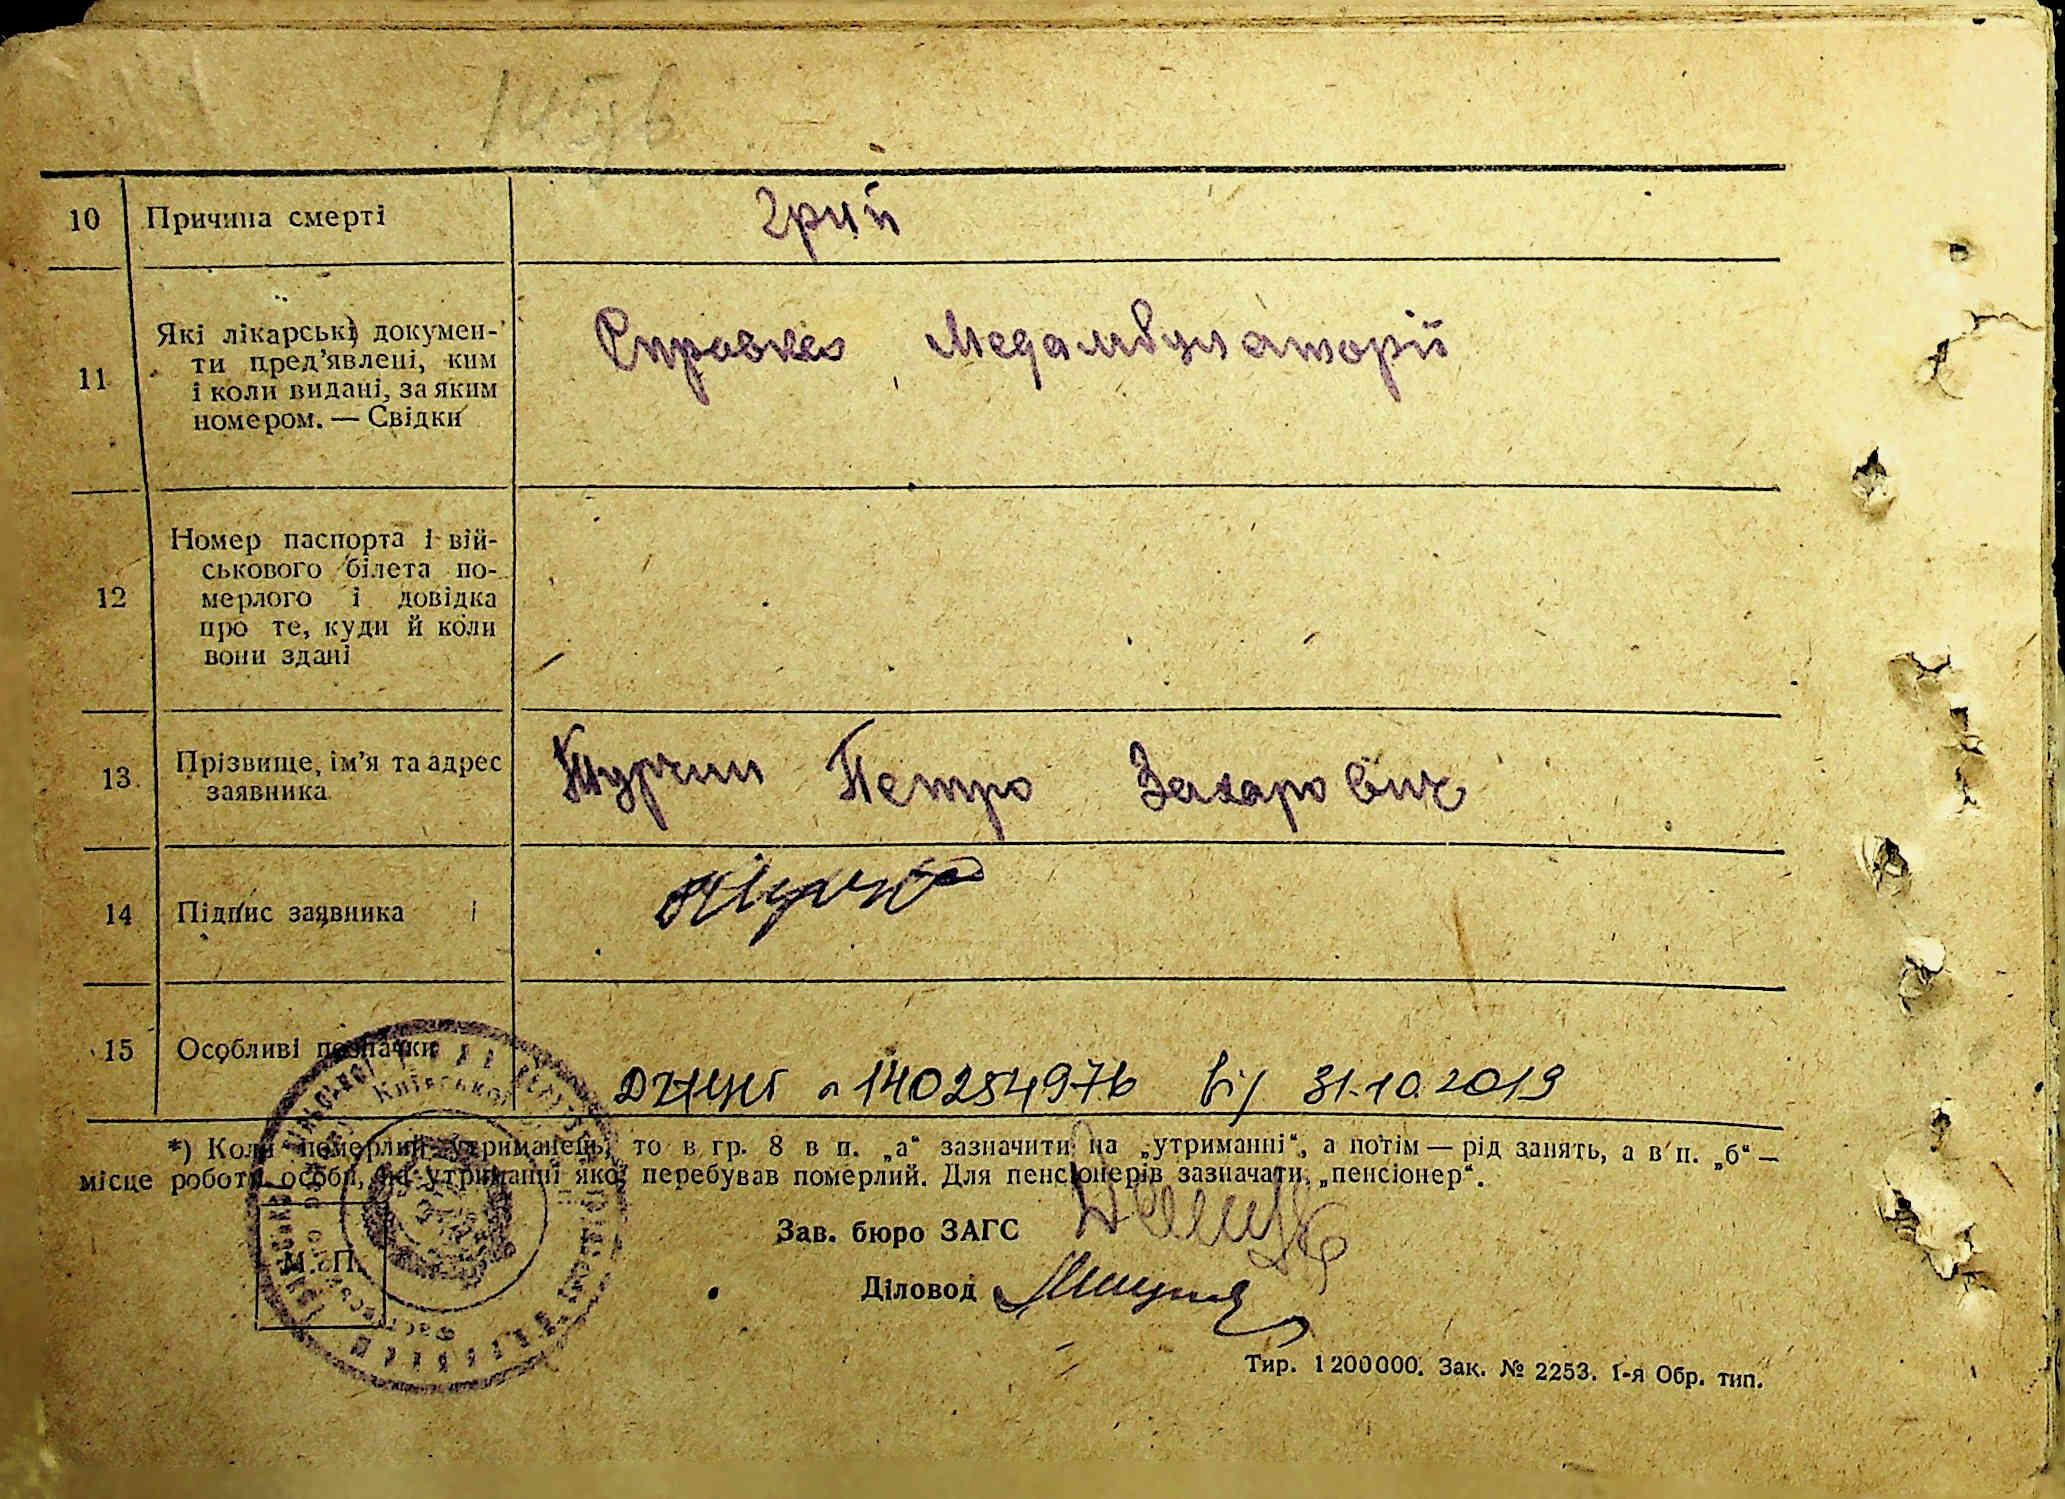 145/6
10 Причина смерті грип
11 Які лікарські докумен-
ти пред’явлені, ким
і коли видані, за яким
номером. — Свідки
Справка Медамбулаторії
12 Номер паспорта і вій-
ськового білета по-
мерлого і довідка
про те, куди й коли
вони здані
13. Прізвище, ім’я та адрес
заявника
Турчин Петро Захарович
14 Підпис заявника
15 Особливі позначки
140254976 від 31.10.2019
*) Коли померлий утриманець, то в гр. 8 в п. „а“ зазначити на „утриманні“, а потім — рід занять, а в п. „б“ —
місце роботи особи, на утриманні якої перебував померлий. Для пенсіонерів зазначати „пенсіонер“.
Київської
М. П.
Зав. бюро ЗАГС
Діловод
Тир. 1200000. Зак. № 2253. 1-я Обр. тип.